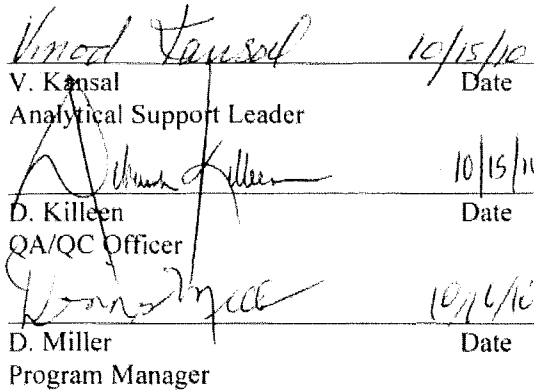 Vinod Kansal 10/15/10
V. Kansal Date
Analytical Support Leader
Killeen 10/15/10
D. Killeen Date
QA/QC Officer
Donna Miller
D. Miller Date
Program Manager